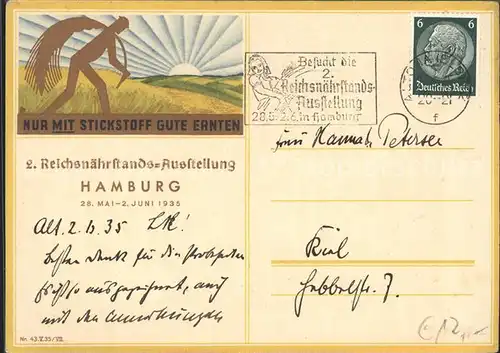 NUR MIT STICKSTOFF GUTE ERNTEN
2. Reichsnährstands=Ausstellung
HAMBURG
28. MAI-2. JUNI 1935
Alt. 2. 6. 35
Besten Dank für die
ausgezeichnet, auch
mit den
Nr. 43.V.35/VII.
Besucht die
2.
Reichsnährstands-
Ausstellung
28.5.-2.6. in Hamburg
6 6
Deutsches Reich
ALTONA
20-21
f
Frau Hannah Petersen
Kiel
Hebbelstr. 7.